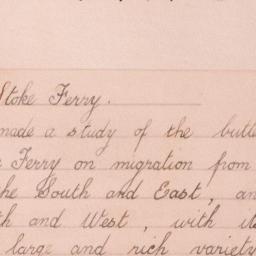 Stoke Ferry.
made a study of the butt
Ferry on migration from
the South and East, an
th and West, with it
large and rich variety